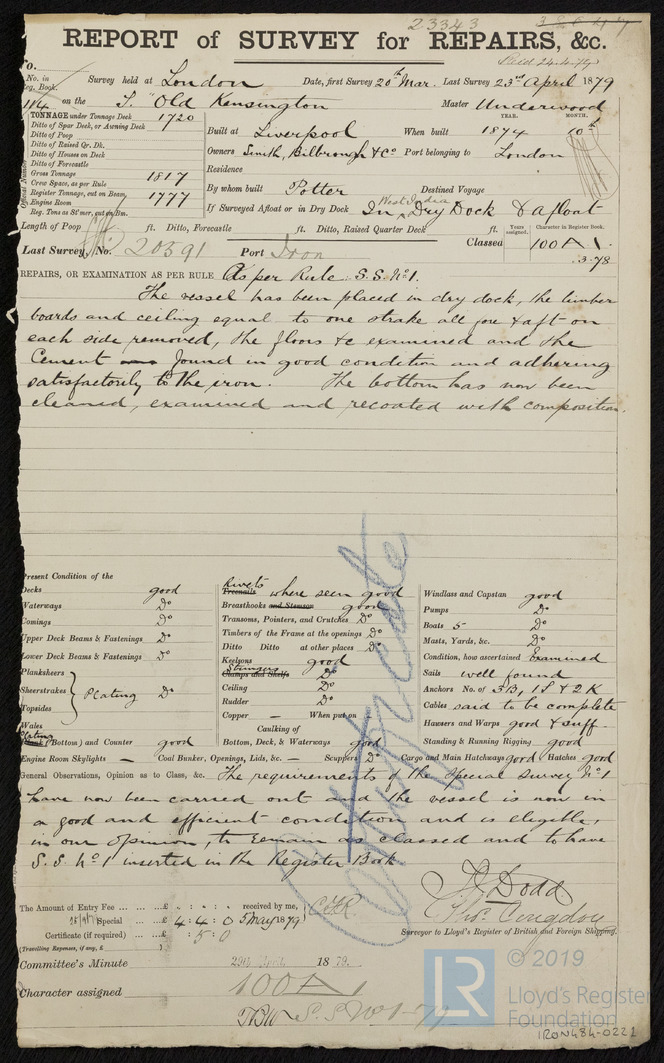 23343
REPORT of SURVEY for REPAIRS, &c.
Paid 24.4.79
No. in Reg. Book. Survey held at London Date, first Survey 20th Mar. Last Survey 23rd April 1879
114 on the S. "Old Kensington Master Underwood
TONNAGE under Tonnage Deck 1720
Ditto of Spar Deck, or Awning Deck
Ditto of Poop
Ditto of Raised Qr. Dk.
Ditto of Houses on Deck
Ditto of Forecastle
Gross Tonnage 1817
Crew Space, as per Rule
Register Tonnage, cut on Beam, 1777
Engine Room
Reg. Tons as St'mer, cut on Bm.
YEAR. MONTH.
Built at Liverpool When built 1874 10th
Owners Smith, Bilbrough & Co Port belonging to London
Residence
By whom built Potter Destined Voyage
West India
If Surveyed Afloat or in Dry Dock In Dry Dock & afloat
Length of Poop ft. Ditto, Forecastle ft. Ditto, Raised Quarter Deck ft. Years assigned. Character in Register Book.
Last Survey, No. 20391 Port Iron Classed 100 A 1.
3.78
REPAIRS, OR EXAMINATION AS PER RULE As per Rule S.S. No 1.
The vessel has been placed in dry dock, the limber
boards and ceiling equal to one strake all fore & aft on
each side removed, the floors &c examined and the
Cement found in good condition and adhering
satisfactorily to the iron. The bottom has now been
cleaned, examined and recoated with composition.
Present Condition of the
Decks good
Waterways Do
Comings Do
Upper Deck Beams & Fastenings Do
Lower Deck Beams & Fastenings Do
Planksheers
Sheerstrakes Plating Do
Topsides
Wales
Plating
Plank (Bottom) and Counter good
Engine Room Skylights — Coal Bunker, Openings, Lids, &c. — Scuppers Do Cargo and Main Hatchways good Hatches good
Rivets
Treenails where seen good
Breasthooks and Stemson good
Transoms, Pointers, and Crutches Do
Timbers of the Frame at the openings Do
Ditto Ditto at other places Do
Keelsons good
Stringers
Clamps and Shelfs Do
Ceiling Do
Rudder Do
Copper — When put on —
Caulking of
Bottom, Deck, & Waterways good
Windlass and Capstan good
Pumps Do
Boats 5 Do
Masts, Yards, &c. Do
Condition, how ascertained Examined
Sails well found
Anchors No. of 3B, 1S & 2K
Cables said to be complete
Hawsers and Warps good & suff
Standing & Running Rigging good
General Observations, Opinion as to Class, &c. The requirements of the Special Survey No 1
have now been carried out and the vessel is now in
a good and efficient condition and is eligible,
in our opinion, to remain as classed and to have
S.S. No 1 inserted in the Register Book
Certificate
J. Dodd
Thos. Congdon
Surveyor to Lloyd's Register of British and Foreign Shipping.
The Amount of Entry Fee ... £ : : received by me,
Special ... £ 4 : 4 : 0 5 May 1879
Certificate (if required) ... : 5 : 0
(Travelling Expenses, if any, £ )
Committee's Minute 29th April 1879.
Character assigned 100 A 1
S.S. No 1-79
© 2019
LR
Lloyd's Register
Foundation
IRON484-0221